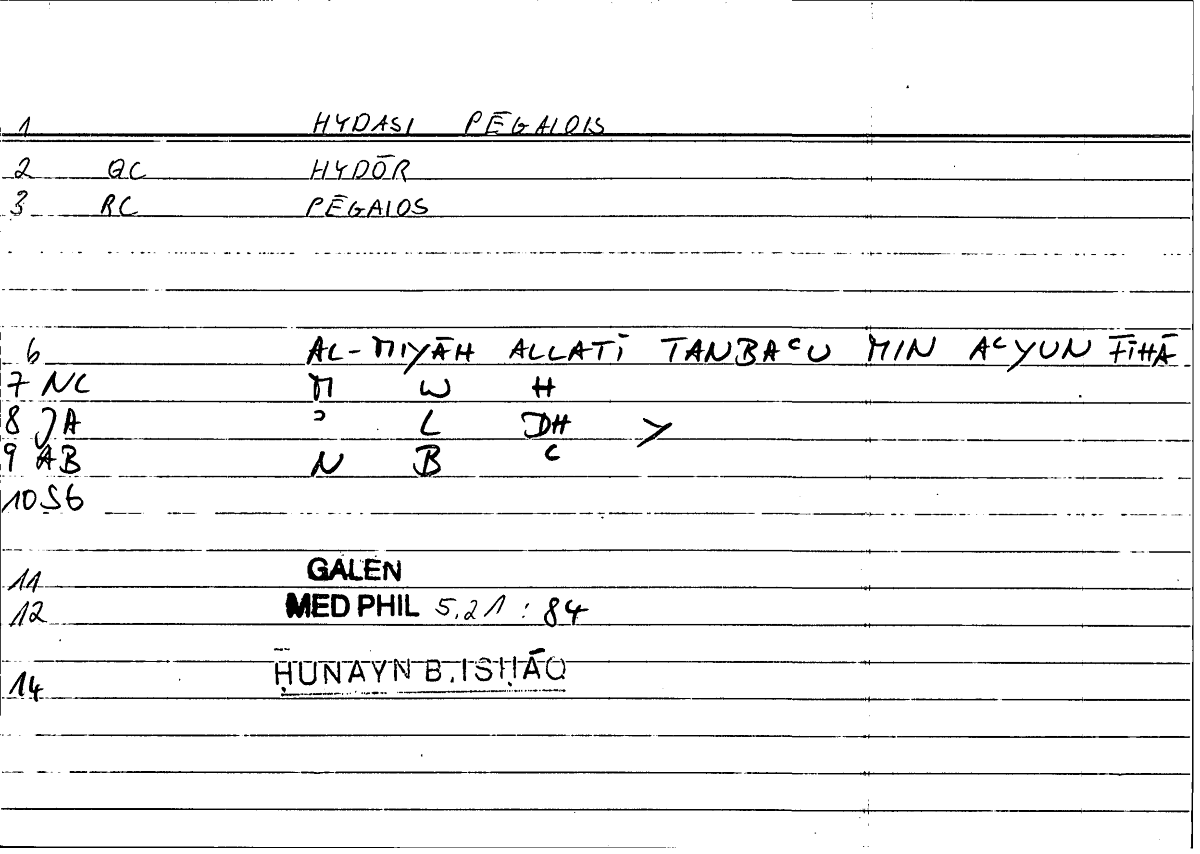 1 HYDASI PĒGAIOIS
2 QC HYDŌR
3 RC PĒGAIOS
6 AL-MIYĀH ALLATĪ TANBAᶜU MIN AᶜYUN FĪHĀ
7 NC M W H
8 JA ᵓ L DH >
9 AB N B ᶜ
10 SG
11 GALEN
12 MED PHIL 5,21 : 84
14 ḤUNAYN B. ISḤĀQ